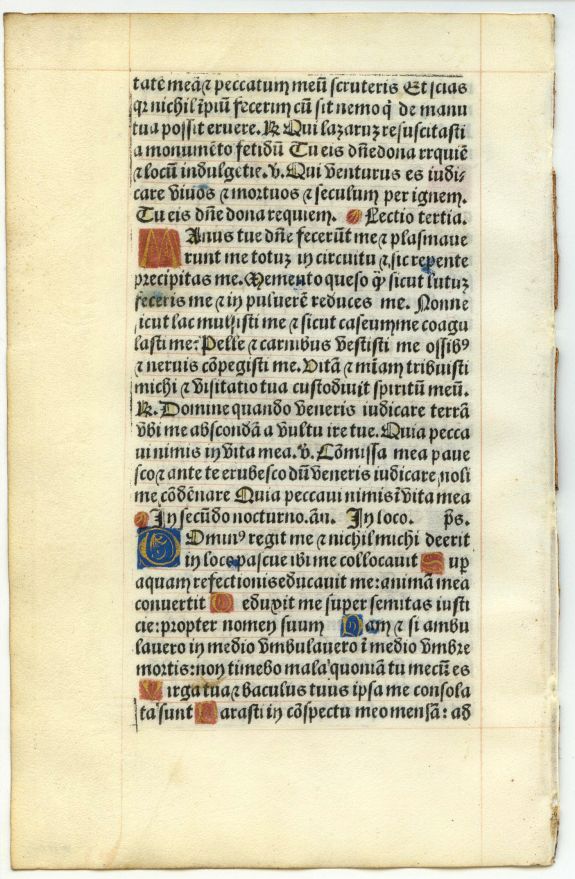 tatē meā ⁊ peccatum meū scruteris Et scias
qꝛ nichil īpiū fecerim cū sit nemo q̄ de manu
tua possit eruere. ℟ Qui lazaruꝫ resuscitasti
a monumēto fetidū Tu eis dn̄e dona rrquiē
⁊ locū indulgētie. v. Qui venturus es iudi-
care viuos ⁊ mortuos ⁊ seculum per ignem.
Tu eis dn̄e dona requiem. Lectio tertia.
Manus tue dn̄e fecerūt me ⁊ plasmaue
runt me totuꝫ in circuitu ⁊ sic repente
precipitas me. Memento queso ꝙ sicut lutuꝫ
feceris me ⁊ in puluerē reduces me. Nonne
sicut lac mulsisti me ⁊ sicut caseum me coagu
lasti me: Pelle ⁊ carnibus vestisti me ossibꝰ
⁊ neruis cōpegisti me. Vitā ⁊ mīam tribuisti
michi ⁊ visitatio tua custodiuit spiritū meū.
℟. Domine quando veneris iudicare terrā
vbi me abscondā a vultu ire tue. Quia pecca
ui nimis in vita mea. v. Cōmissa mea paue
sco ⁊ ante te erubesco dū veneris iudicare noli
me cōdēnare Quia peccaui nimis ī vita mea
In secūdo nocturno. an. In loco. p̄s.
Dominꝰ regit me ⁊ nichil michi deerit
in loco pascue ibi me collocauit Sup
aquam refectionis educauit me: animā mea
conuertit Deduxit me super semitas iusti
cie: propter nomen suum Nam ⁊ si ambu
lauero in medio vmbulauero ī medio vmbre
mortis: non timebo mala quoniā tu mecū es
Virga tua ⁊ baculus tuus ipsa me consola
ta sunt Parasti in cōspectu meo mensā: ad